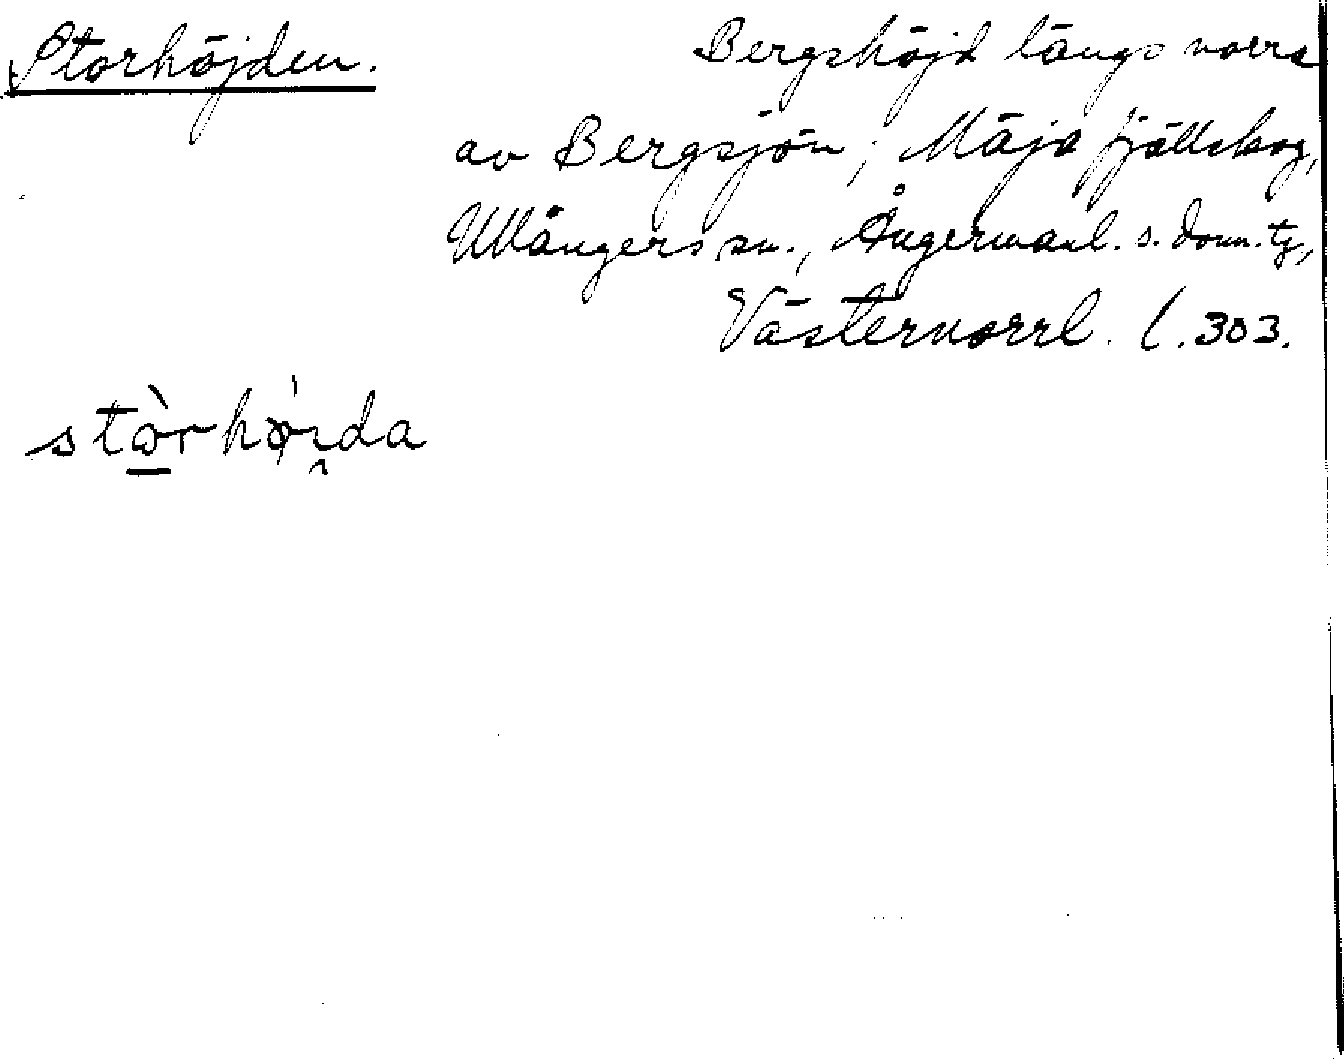 Storhöjden.
Bergshöjd längs norra
av Bergsjön, Mäja fjällskog,
Ullångers sn., Ångermanl. s. dom. tg,
Västernorrl. l. 303.
stòrhø̀i̯da